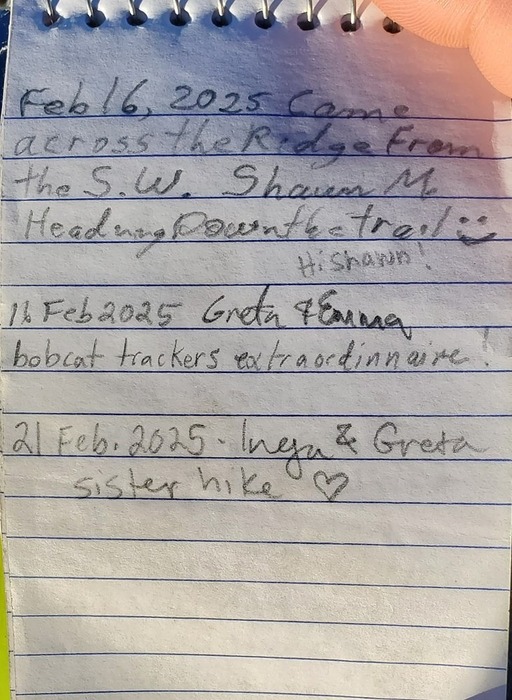 Feb 16, 2025 Came
across the Ridge From
the S.W. Shawn M.
Heading Down the trail :)
Hi Shawn!
16 Feb 2025 Greta & Emma
bobcat trackers extraordinnaire!
21 Feb. 2025. Inga & Greta
sister hike ♡